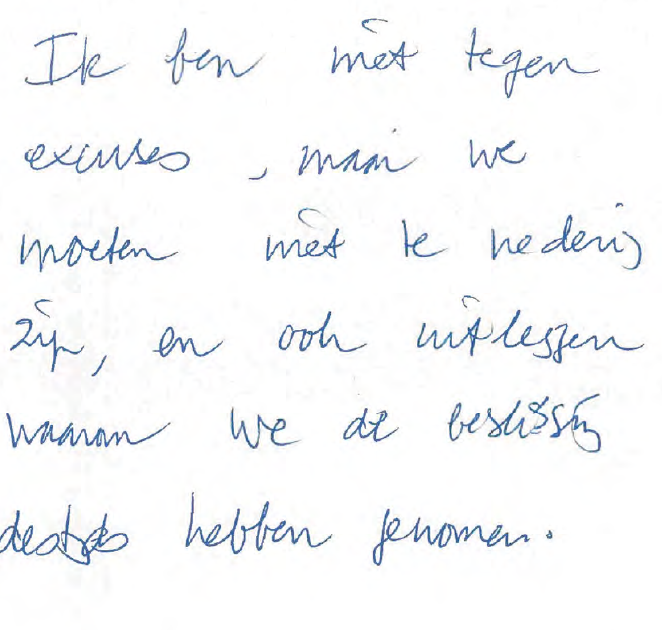 Ik ben niet tegen
excuses, maar we
moeten niet te nederig
zijn, en ook uitleggen
waarom we de beslissing
destijds hebben genomen.